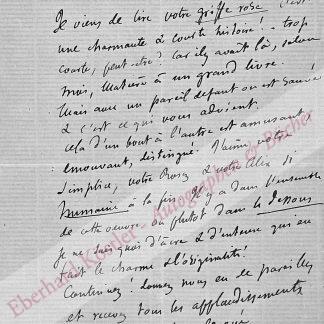 Je viens de lire votre griffe rose
une charmante & courte histoire! - trop
courte, peut-être? Car il y avait là, selon
moi, matière à un grand livre.
Mais avec un pareil défaut on est sauvé
& c'est ce qui vous advient.
cela d'un bout à l'autre est amusant,
émouvant, distingué. J'aime votre
Simplice, votre Rose, & votre Alex si
humaine à la fin. Il y a dans l'ensemble
de cette oeuvre ou plutôt dans le dessous
je ne sais quoi d'âcre & d'intense qui en
fait le charme & l'originalité!
Continuez! Donnez nous en de pareilles
et recevez tous les applaudissements
Eberhard Köstler - Autographen & Bücher